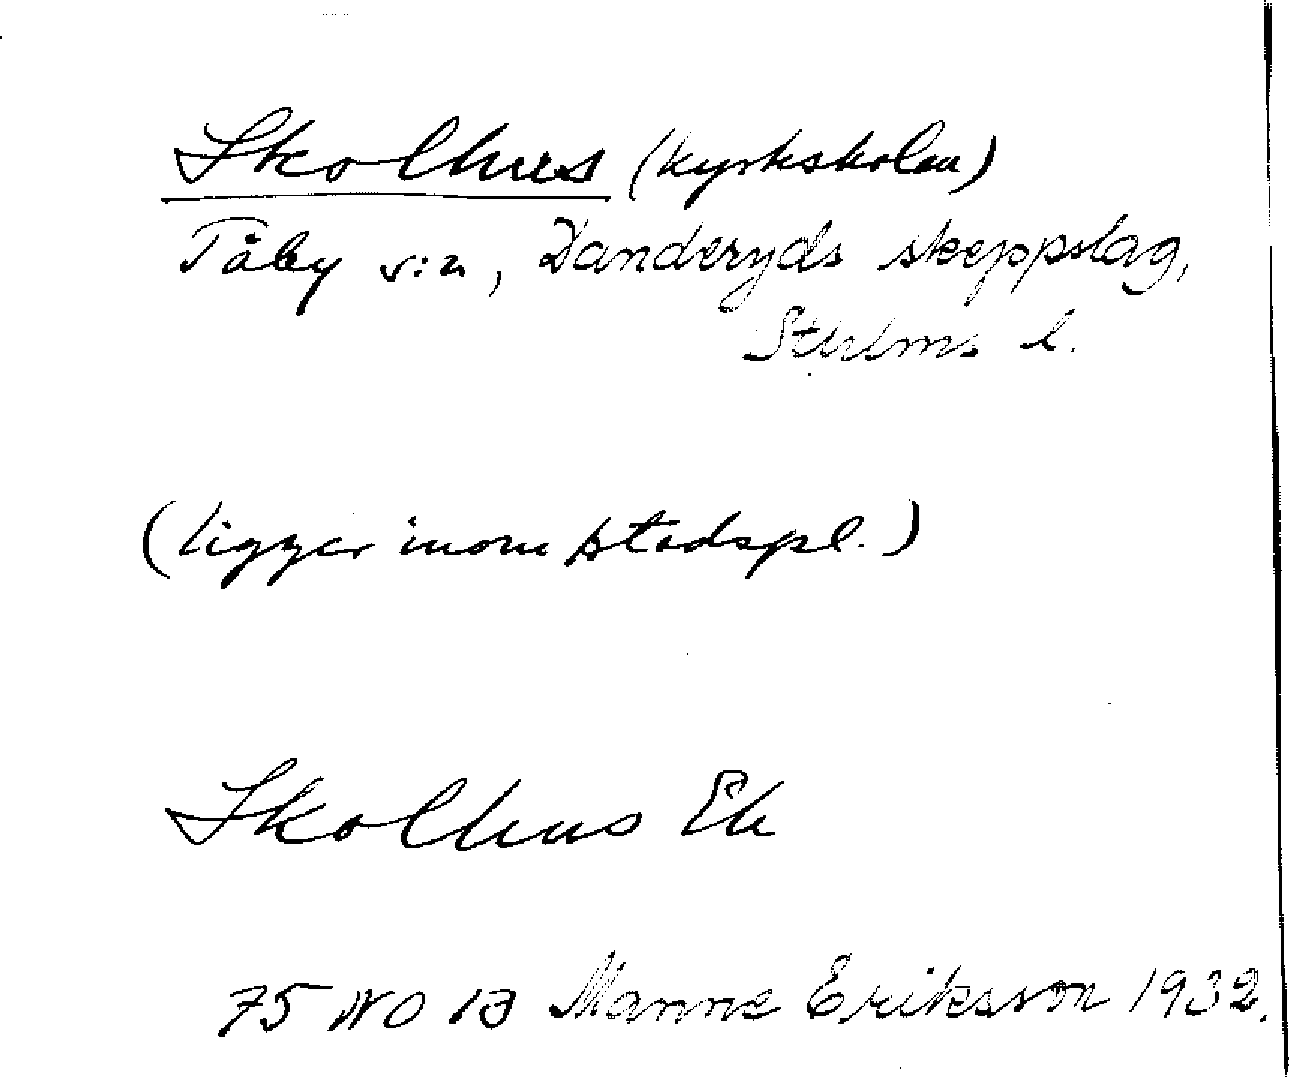 Skolhus (kyrkskolan)
Täby s:n, Danderyds skeppslag,
Sthlms l.
(ligger inom stadspl.)
Skolhus Ek
75 NO 1B Manne Eriksson 1932.